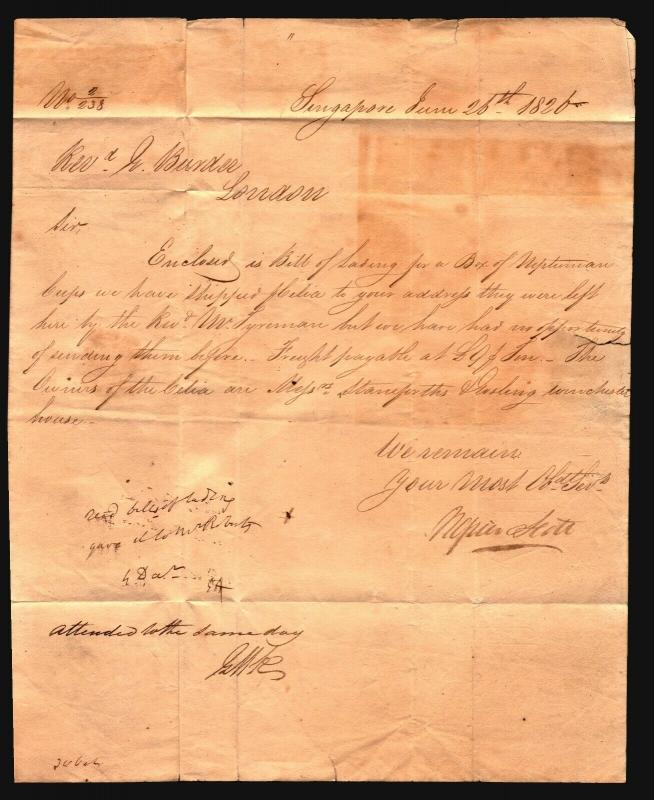 No. 2/238
Singapore June 26th 1826
Revd. G. Burder
London
Sir,
Enclosed is Bill of Lading for a Box of Neptunian
Cups we have shipped Celia to your address they were left
here by the Revd. Mr Tyreman but we have had no opportunity
of sending them before. - Freight payable at Ton. - The
Owners of the Celia are Messrs Staniforths & Gosling Winchester
house. -
We remain
Your Most Obdt Servts
Napier Scott
read bill of lading
gave it to Mr Roberts
4 Decr
attended to the same day